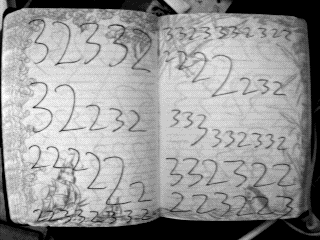 32332
32232
222222
2233323232
332332322
2222232
333332332
3323322
2223223